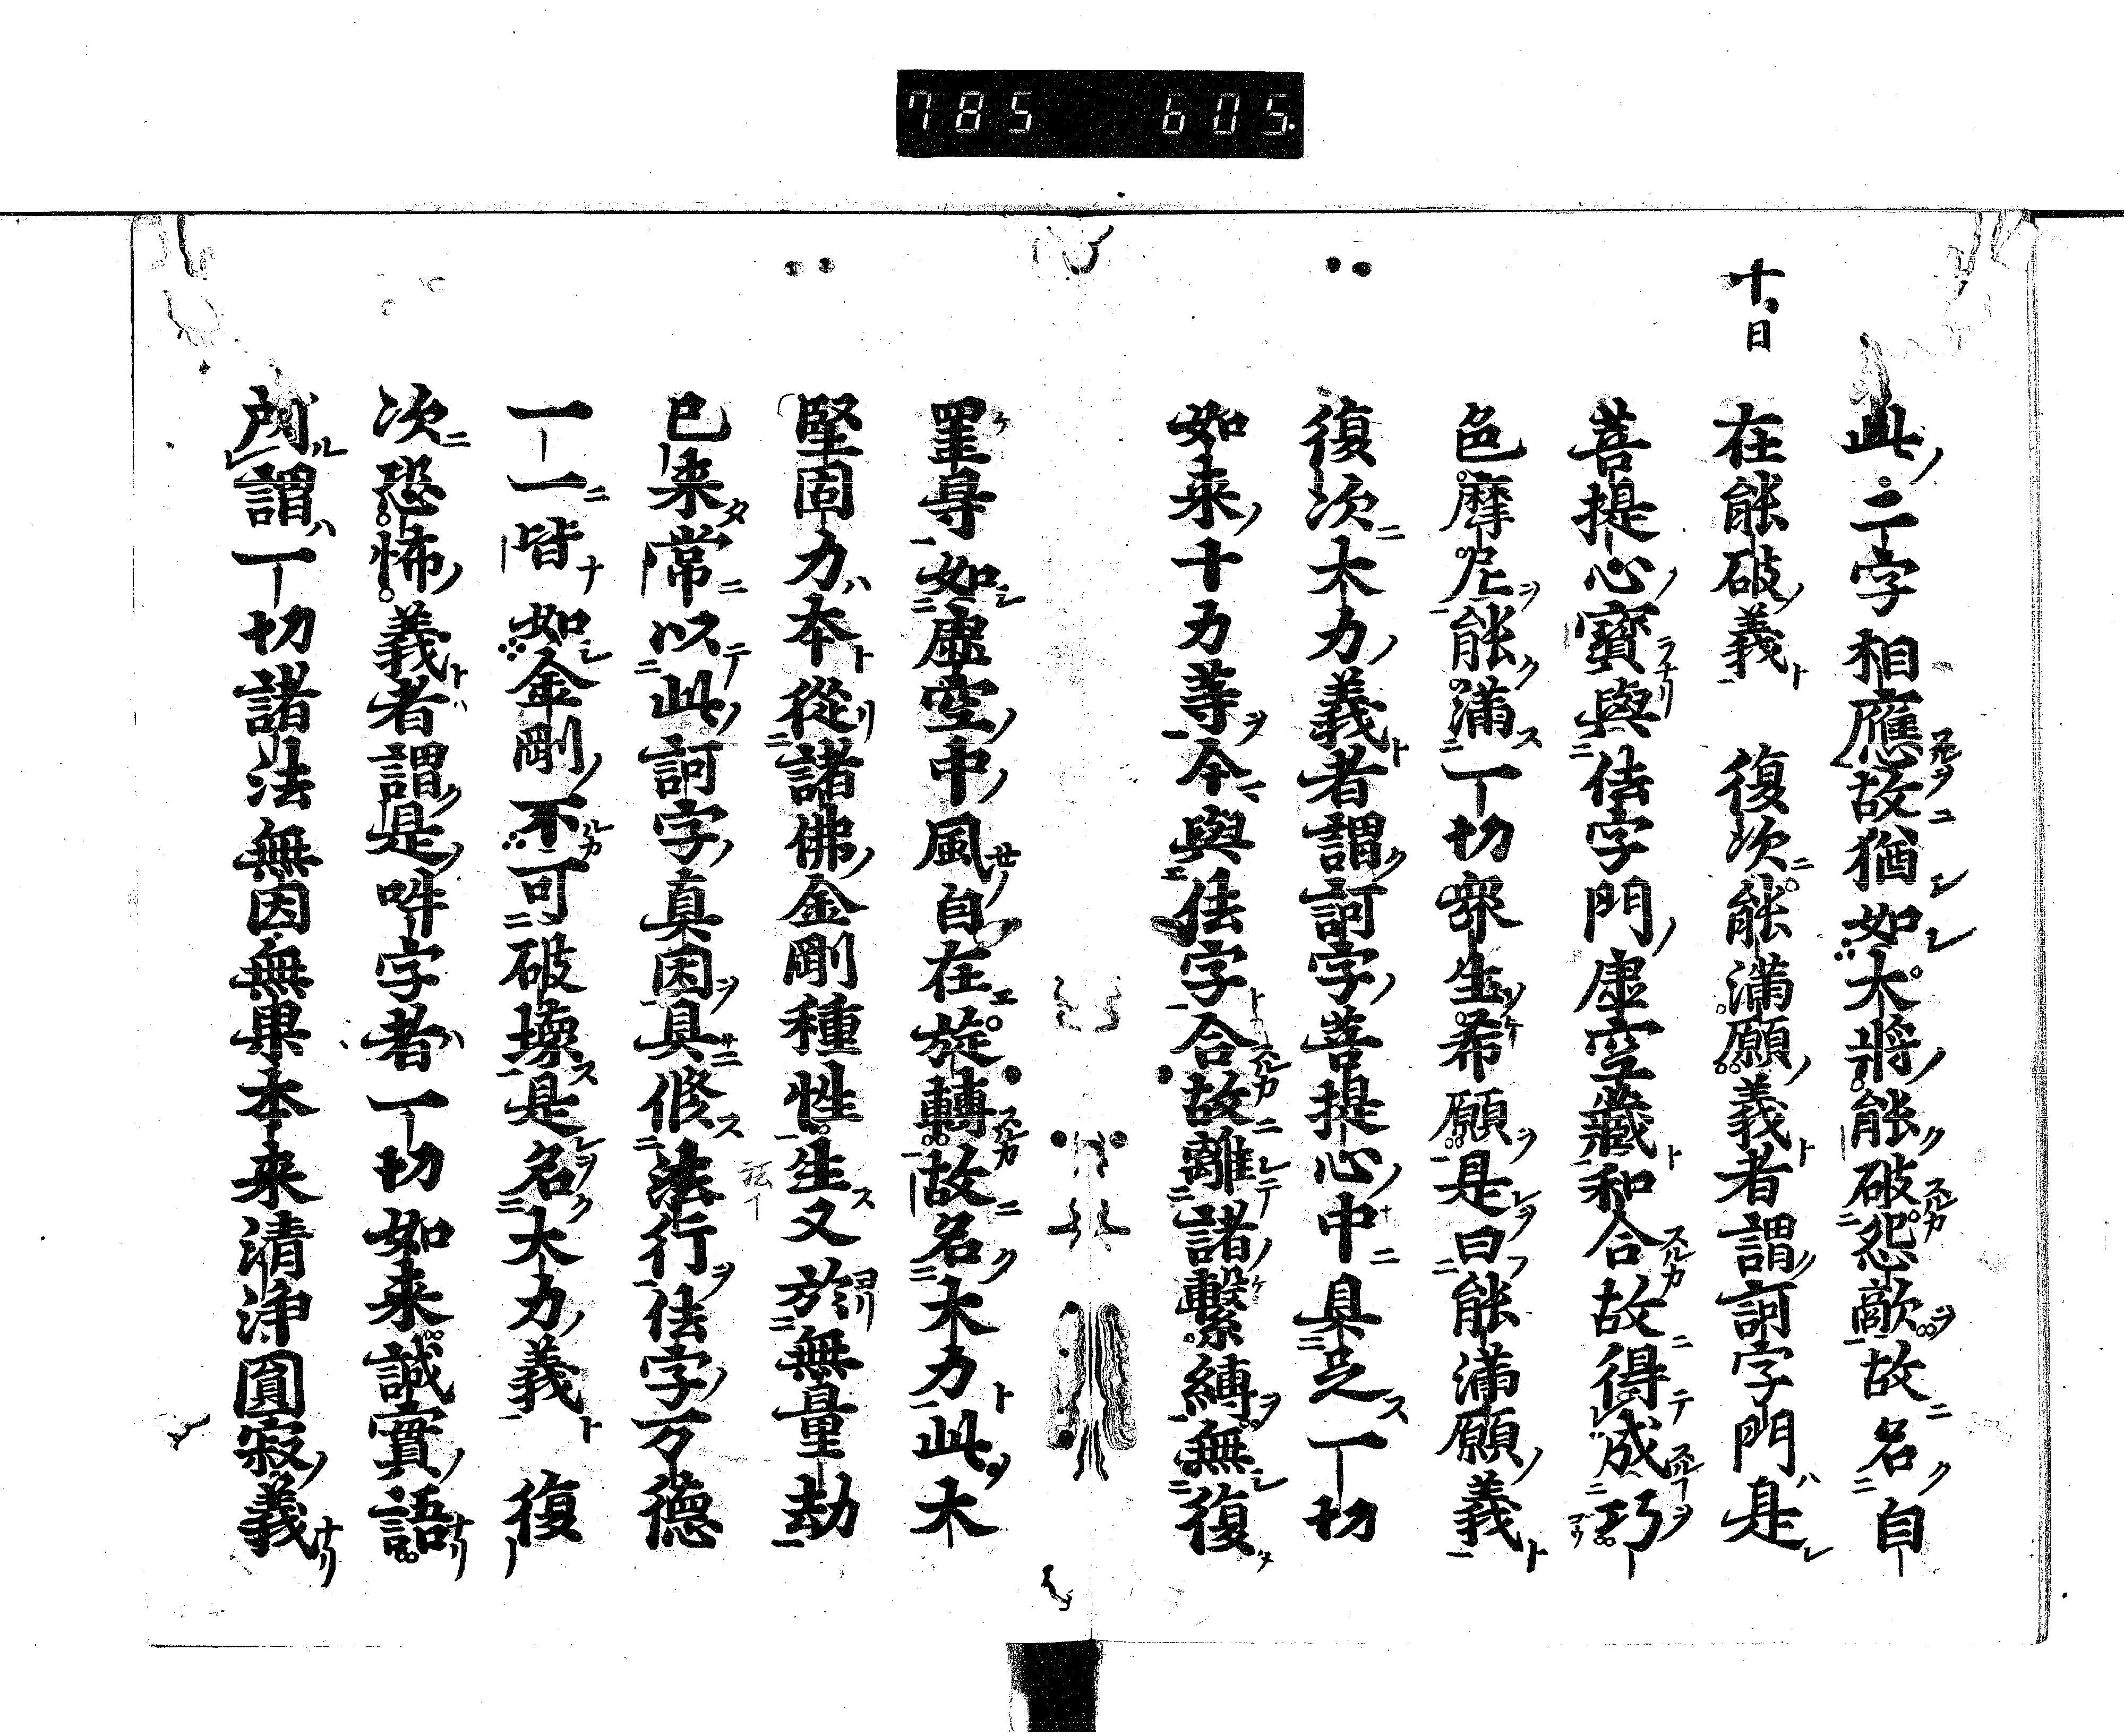 785 605.
十日
此二字相應故猶如大將能破怨敵故名自
在能破義 復次能滿願義者謂訶字門是
菩提心寶與𠆙字門虛空藏和合故得成巧
色摩尼能滿一切衆生希願是曰能滿願義
復次大力義者謂訶字菩提心中具足一切
如来十力等今與𠆙字合故離諸繫縛無復
罣㝵如虛空中風自在旋轉故名大力此大
堅固力本從諸佛金剛種性生又於無量劫
已来常以此訶字真因具修法行𠆙字万德
一一皆如金剛不可破壞是名大力義 復
次恐怖義者謂是吽字者一切如来誠實語
所謂一切諸法無因無果本来清浄圓寂義